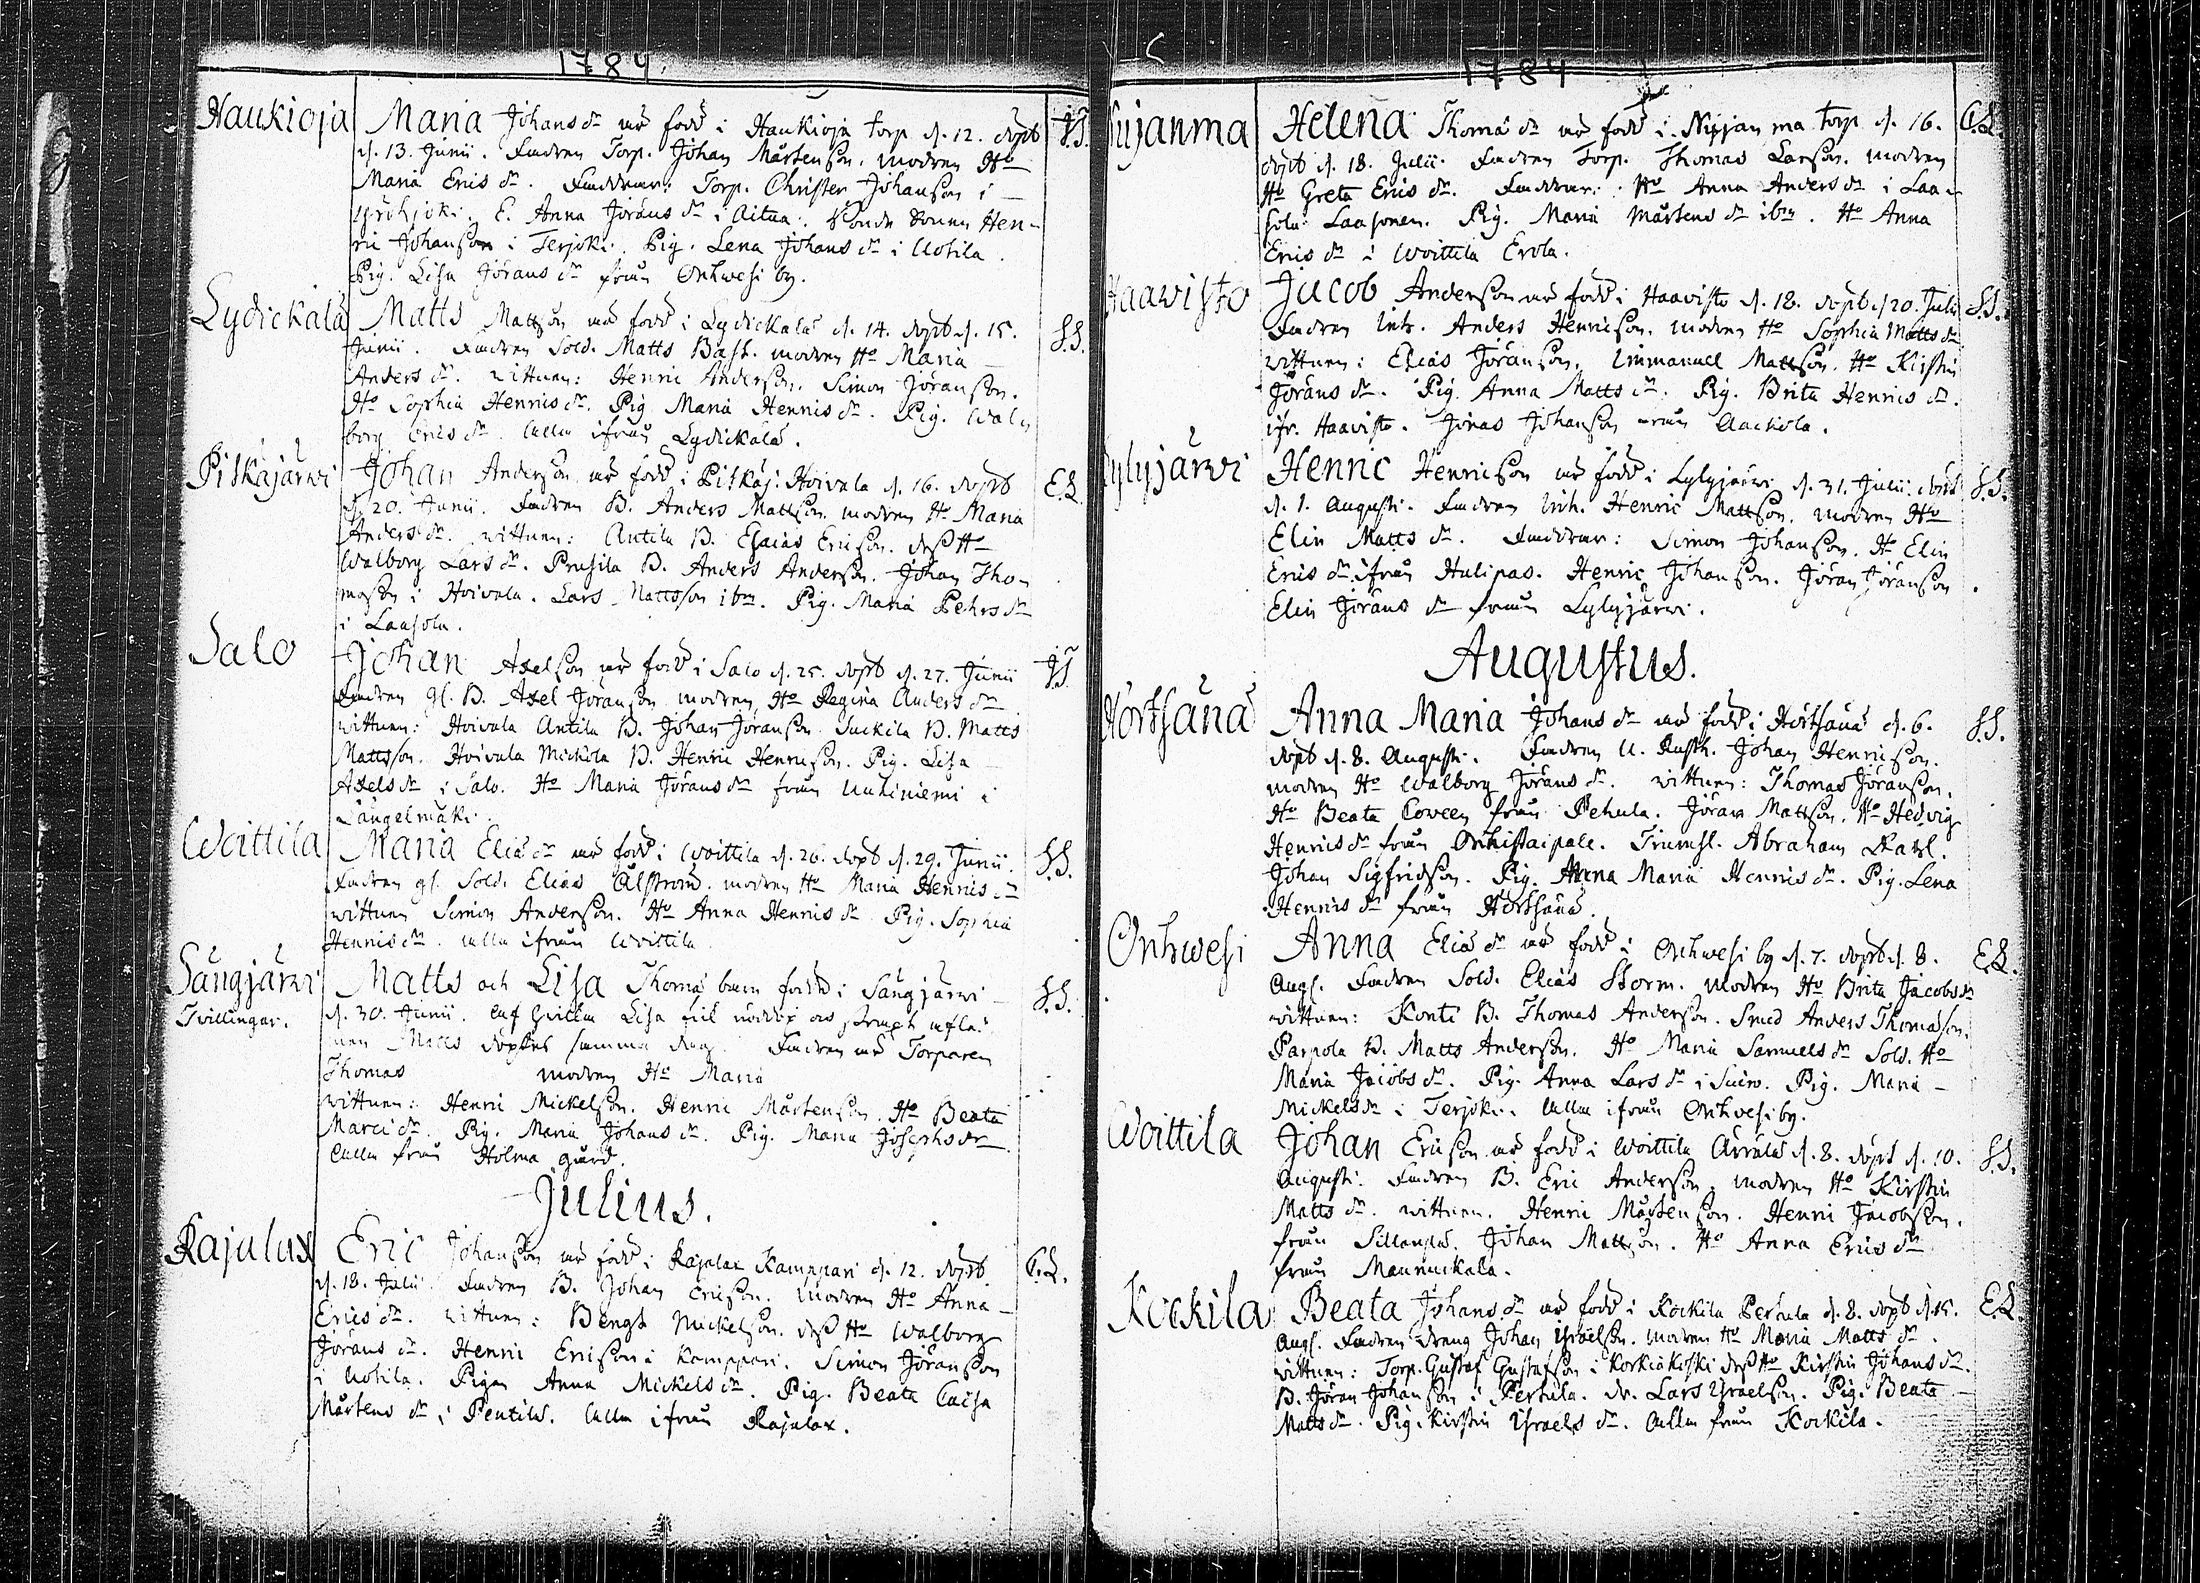 1784.
Haukioja Maria Johans dr är född i Haukioja torp d. 12. döpt J.S.
d. 13. Junii. Fadren Torp. Johan Mårtenson. modren Ho
Maria Erics dr. Faddrar: Torp. Christer Johanson i
E. Anna Jörans dr i Aitaa. Bonde Sonen Hen-
ric Johanson i Terjoki. Pig. Lena Johans dr i Uotila.
Pig. Lisa Jörans dr från Onkwesi by.
Lydickälä Matts Mattson är född i Lydickälä d. 14. döpt d. 15. S.S.
Junii. Fadren Sold. Matts Bass. modren Ho Maria
Anders dr. wittnen: Henric Anderson. Simon Jöranson.
Ho Sophia Henrics dr. Pig. Maria Henrics dr. Pig. Wal-
borg Erics dr. alla ifrån Lydickälä.
Pitkäjärwi Johan Anderson är född i Pitkäj: Hoivala d. 16. döpt E.L.
d. 20. Junii. Fadren B. Anders Mattson. modren Ho Maria
Anders dr. wittnen: Antila B. Esaias Ericson. dess Ho
Walborg Lars dr. Prusila B. Anders Anderson. Johan Tho-
mason i Hoivala. Lars Mattsson ibm. Pig. Maria Pehrs dr
i Laasola.
Salo Johan Axelson är född i Salo d. 25. döpt d. 27. Junii J.S.
Fadren gl. B. Axel Jöranson modren Ho Regina Anders dr
wittnen: Hoivala Antila B. Johan Jöranson. Suckila B. Matts
Mattsson. Hoivala Mickola B. Henric Henricson. Pig. Lisa
Axels dr i Salo. Ho Maria Jörans dr från Uukiniemi i
Längelmäki.
Woittila Maria Elias dr är född i Woittila d. 26. döpt d. 29. Junii. S.S.
Fadren gl. Sold. Elias Ålström. modren Ho Maria Henrics dr
wittnen Simon Anderson. Ho Anna Henrics dr Pig. Sophia
Henrics dr. alla ifrån Woittila.
Sångjärwi Matts och Lisa Thomæ barn födde i Sångjärwi S.S.
Tvillingar. d. 30. Junii. Lisa fick nöddop och straxt afled.
men Matts döptes samma dag. Fadren är Torparen
Thomas modren Ho Maria
wittnen: Henric Mickelson. Henric Mårtenson. Ho Beata
Marci dr. Pig. Maria Johans dr. Pig. Maria Josephs dr
alla från Holma gård.
Julius.
Rajalax Eric Johanson är född i Rajalax Kamppari d. 12. döpt C.L.
d. 18. Julii. Fadren B. Johan Ericson. modren Ho Anna
Erics dr. wittnen: Bengt Mickelson. dess Ho Walborg
Jörans dr. Henric Ericson i Kamppari. Simon Jöranson
i Uotila. Pigan Anna Mickels dr. Pig. Beata Caisa
Mårtens dr i Pentilä. alla ifrån Rajalax.
1784
ijanma Helena Thomæ dr är född i Nijjanma torp d. 16. C.L.
döpt d. 18. Julii. Fadren Torp. Thomas Larson. modren
Ho Greta Erics dr. Faddrar: Ho Anna Anders dr i Laa-
sola Laasonen. Pig. Maria Mårtens dr ibm. Ho Anna
Erics dr i Woittila Erola.
Haavisto Jacob Anderson är född i Haavisto d. 18. döpt d. 20. Julii S.S.
Fadren Inh. Anders Henricson. modren Ho Sophia Matts dr
wittnen: Elias Jöranson. Immanuel Mattson. Ho Kirstin
Jörans dr. Pig. Anna Matts dr. Pig. Brita Henrics dr.
ifr. Haavisto. Jonas Johanson från Aackola.
Lylyjärwi Henric Henricson är född i Lylyjärwi d. 31. Julii. döpt S.S.
d. 1. Augusti. Fadren Inh. Henric Mattson. modren Ho
Elin Matts dr. Faddrar: Simon Johanson. Ho Elin
Erics dr ifrån Hulipas. Henric Johanson. Jöran Jöranson
Elin Jörans dr från Lylyjärwi.
Augustus.
Hörtsänä Anna Maria Johans dr är född i Hörtsänä d. 6. S.S.
döpt d. 8. Augusti. Fadren U. Rusth. Johan Henricson.
modren Ho Walborg Jörans dr. wittnen: Thomas Jöranson.
Ho Beata Coveen från Pehula. Jöran Mattson. Ho Hedvig
Henrics dr från Onkistaipale. Trumsl. Abraham
Johan Sigfridson. Pig. Anna Maria Henrics dr. Pig. Lena
Henrics dr från Hörtsänä.
Onkwesi Anna Elias dr är född i Onkwesi by d. 7. döpt d. 8. E.L.
Aug. Fadren Sold. Elias Storm. modren Ho Brita Jacobs dr
wittnen: Konti B. Thomas Anderson. Smed Anders Thomason.
Parpola B. Matts Anderson. Ho Maria Samuels dr Sold. Ho
Maria Jacobs dr. Pig. Anna Lars dr i Pig. Maria
Mickels dr i Terjoki. alla ifrån Onkwesi by.
Woittila Johan Ericson är född i Woittila Ärrälä d. 8. döpt d. 10. S.S.
Augusti. Fadren B. Eric Anderson. modren Ho Kirstin
Matts dr. wittnen. Henric Mårtenson. Henric Jacobson.
från Sillanpää. Johan Mattson. Ho Anna Erics dr
från Mannuckala.
Kockila Beata Johans dr är född i Kockila Pertula d. 8. döpt d. 15. E.L.
Aug. Fadren dräng Johan Israelson. modren Ho Maria Matts dr.
wittnen: Torp. Gustaf Gustafson i Korkiakoski dess Ho Kirstin Johans dr.
B. Jöran Johanson i Pertula. dr. Lars Israelson. Pig. Beata
Matts dr. Pig. Kirstin Israels dr. alla från Kockila.